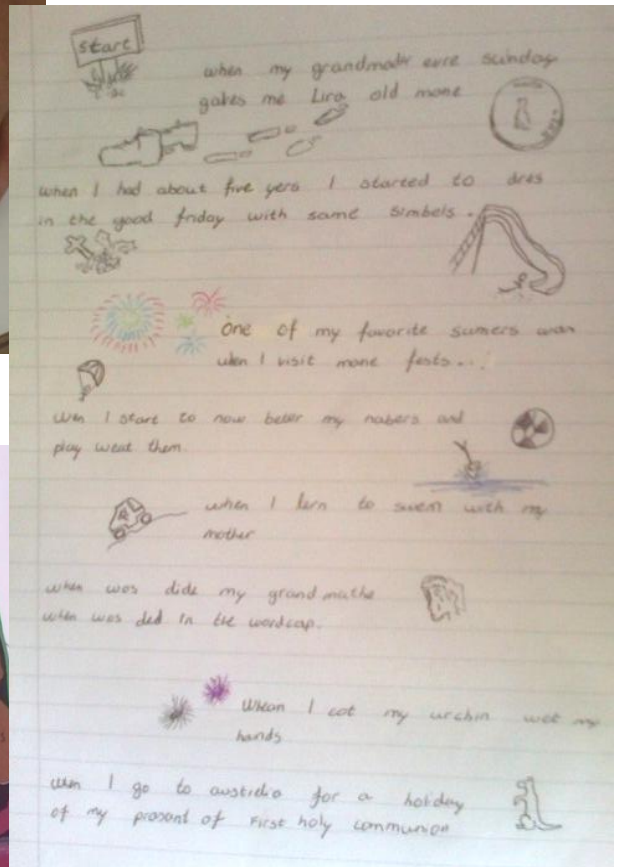 start
when my grandmadr evre sunday
gaves me Lira old mone
when I had about five yers I started to dres
in the good friday with same simbels.
one of my favorite sumers was
when I visit mane fests...
wen I start to now beter my nabers and
play weat them.
when I lern to swem with my
mother
when was dide my grand mathe
when was ded in the wordcap.
Whean I cot my urchin wet my
hands
wen I go to austrelia for a holiday
of my prasant of First holy communion